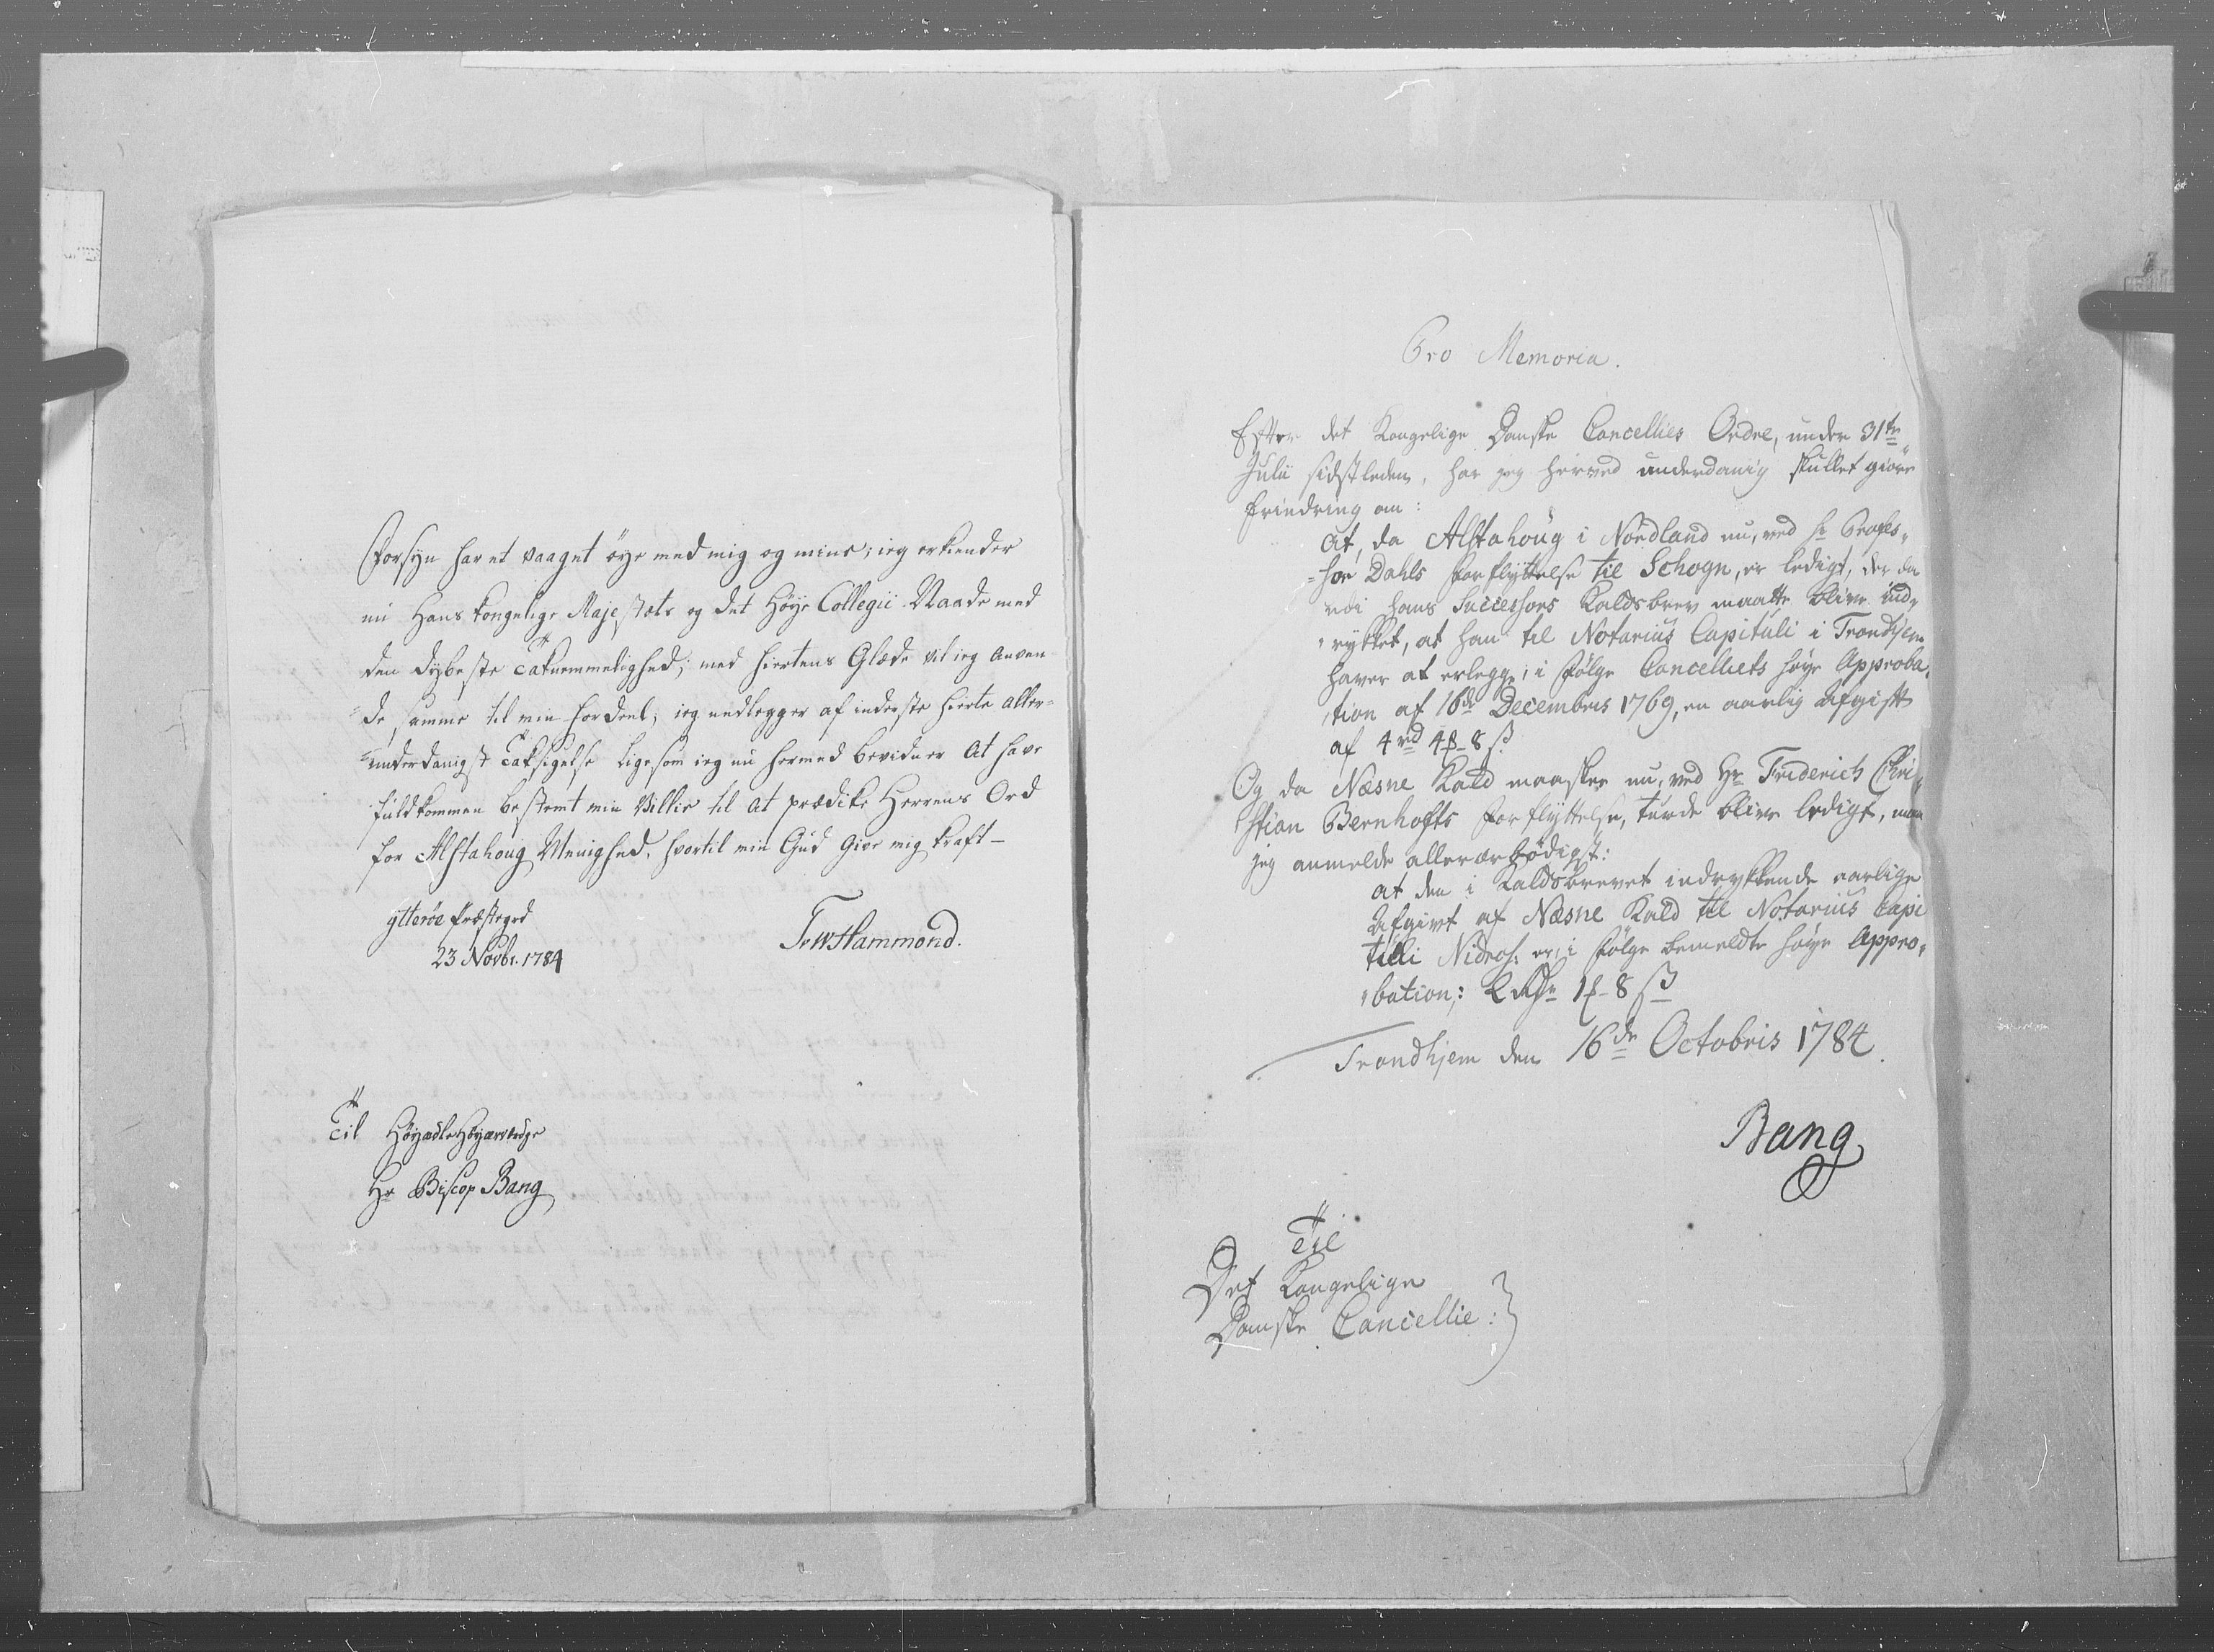 Forsyn har et vaaget öye med mig og mine; ieg erkiender
nu Hans kongelige Majestæts og det Høye Collegii Naade med
den dybeste Taknemmelighed; med hiertens Glæde vil ieg anven
de samme til min fordeel; ieg nedlegger af inderste hierte aller-
underdanigst Taksigelse ligesom ieg nu hermed bevidner at have
fuldkommen bestemt min Villie til at prædike Herrens Ord
for Alstahoug Menighed, hvortil min Gud give mig kraft -
Ytterøe Præstegrd
23 Novbr. 1784
Hammond.
Til Høyædle Høyærværdige
Hr Biscop Bang
Pro Memoria.
Efter det Kongelige Danske Cancellies Ordre, under 31te
Julii sidstleden, har jeg herved underdanig skullet giøre
Erindring om:
at, da Alstahoug i Nordland nu, ved Hr Profes„
„sor Dahls Forflyttelse til Schogn, er ledigt, der da
udi hans Successors Kaldsbrev maatte blive ind„
„rykket, at han til Notarius Capituli i Trondhjem
haver at erlegge, i Følge Cancelliets høye Approba„
„tion af 16de Decembris 1769, en aarlig Afgift
af 4 rd 4 - 8 ß.
Og da Næsne Kald maaskee nu, ved Hr Friderich Chri„
stian Bernhofts Forflyttelse, turde blive ledigt, maa
jeg anmelde allerærbødigst:
at den i Kaldsbrevet indrykkende aarlige
Afgivt af Næsne Kald til Notarius Capi
tuli Nidros: er, i Følge bemeldte høye Appro„
„bation: 2 Rdr 1 - 8 ß
Trondhjem den 16de Octobris 1784.
Bang
Til
Det Kongelige
Danske Cancellie: